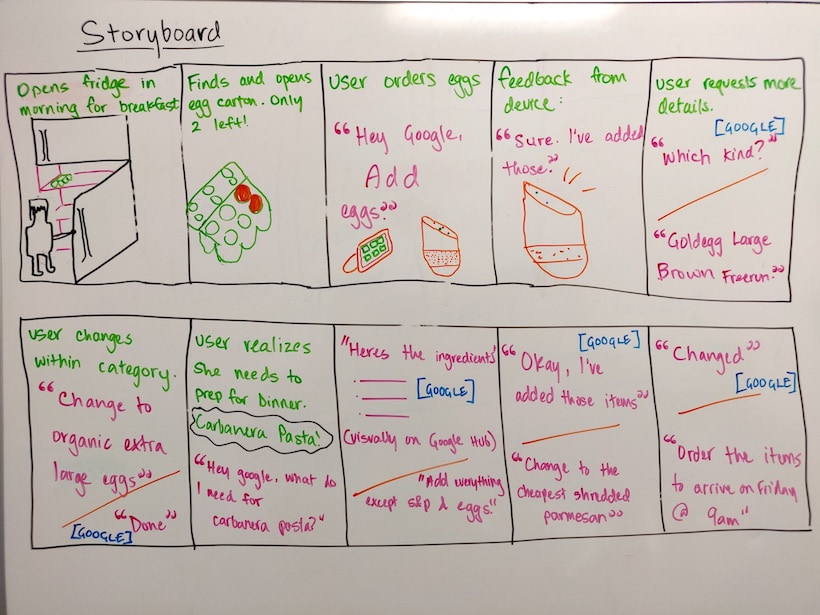 Storyboard
Opens fridge in
morning for breakfast
Finds and opens
egg carton. Only
2 left!
User orders eggs
"Hey Google,
Add
eggs."
feedback from
device:
"Sure. I've added
those."
user requests more
details.
[GOOGLE]
"Which kind?"
"Goldegg Large
Brown Freerun."
user changes
within category.
"Change to
organic extra
large eggs"
"Done"
[GOOGLE]
user realizes
She needs to
prep for Dinner.
Carbanera Pasta!
"Hey google, what do
I need for
carbanera pasta?"
"Heres the ingredients"
[GOOGLE]
(visually on Google Hub)
"Add everything
except s&p & eggs."
[GOOGLE]
"Okay, I've
added those items"
"Change to the
cheapest shredded
parmesan"
"Changed"
[GOOGLE]
"Order the items
to arrive on Friday
@ 9am"